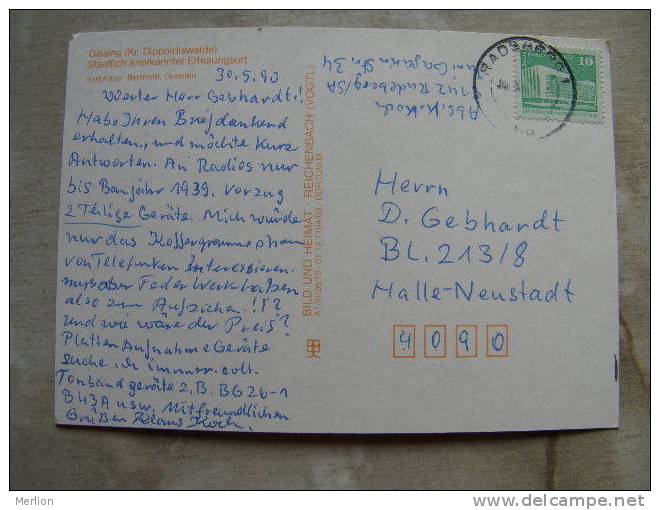 Geising (Kr. Dippoldiswalde)
Staatlich anerkannter Erholungsort
Farbfotos: Berthold, Dresden
30.5.90
Werter Herr Gebhardt!
Habe Ihren Brief dankend
erhalten, und möchte Kurz
Antworten. An Radios nur
bis Baujahr 1939. Vorzug
2 Teilige Geräte. Mich würde
nur das Koffergrammophon
von Telefunken Interessieren.
muss aber Federwerk haben
also zum Aufziehen!!!?
und wie wäre der Preis?
Platten Aufnahme Geräte
suche ich immer. evlt.
Tonbandgeräte z.B. BG 26-1
B43A usw. Mit freundlichen
Grüßen Klaus Koch.
BILD UND HEIMAT REICHENBACH (VOGTL)
Abs. K. Koch
8142 Radeberg/SA
Juri Gagarin Str. 34
RADEBERG 1
10
Herrn
D. Gebhardt
BL. 213/8
Halle-Neustadt
4090
Merlion
www.delcampe.net